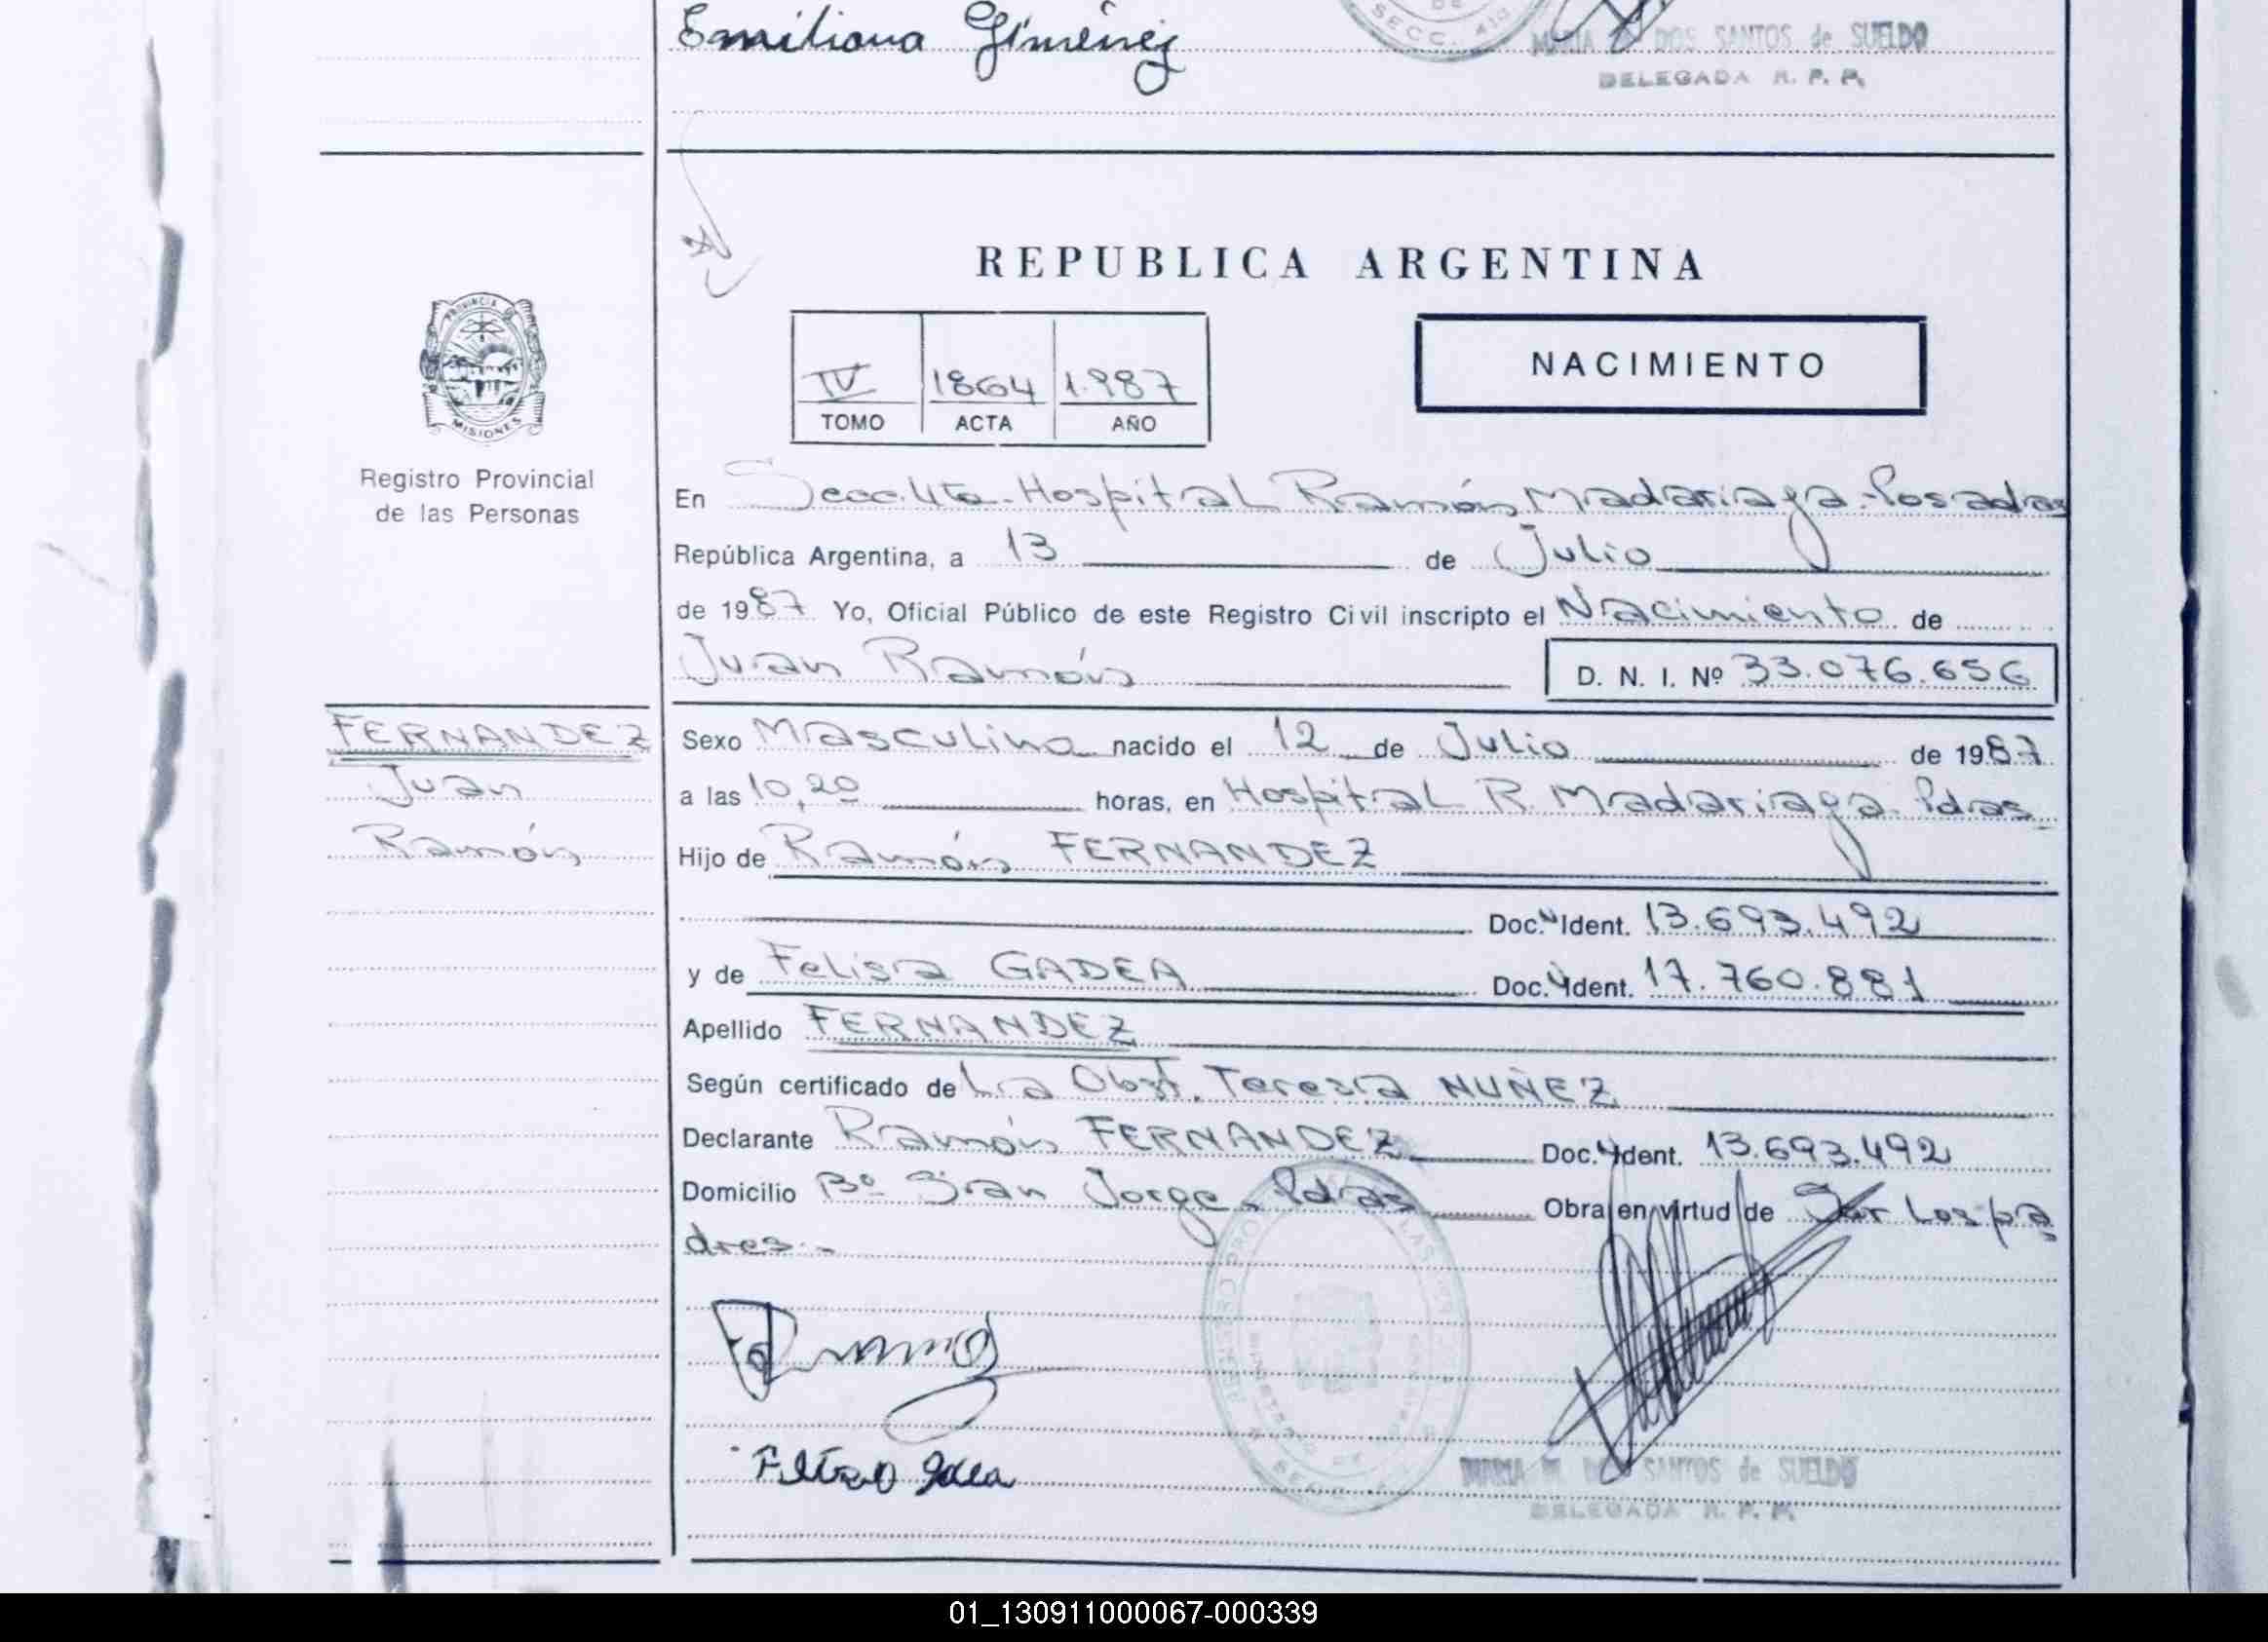 Emiliana Giménez
SECC. 4ta
MARIA DOS SANTOS de SUELDO
DELEGADA R. P. P.
REPUBLICA ARGENTINA
PROVINCIA
MISIONES
Registro Provincial
de las Personas
IV 1864 1.987
TOMO ACTA AÑO
NACIMIENTO
En Secc. 4ta - Hospital Ramón Madariaga - Posadas
República Argentina, a 13 de Julio
de 1987 Yo, Oficial Público de este Registro Civil inscripto el Nacimiento de
Juan Ramón D. N. I. Nº 33.076.656
FERNANDEZ
Juan
Ramón
Sexo Masculino nacido el 12 de Julio de 1987
a las 10,20 horas, en Hospital R. Madariaga Pdas.
Hijo de Ramón FERNANDEZ
Doc. Ident. 13.693.492
y de Felisa GADEA Doc. Ident. 17.760.881
Apellido FERNANDEZ
Según certificado de La Obst. Teresa NUÑEZ
Declarante Ramón FERNANDEZ Doc. Ident. 13.693.492
Domicilio Bº San Jorge - Pdas Obra en virtud de Ser Los pa
dres.-
MARIA M. DOS SANTOS de SUELDO
DELEGADA R. P. P.
01_130911000067-000339